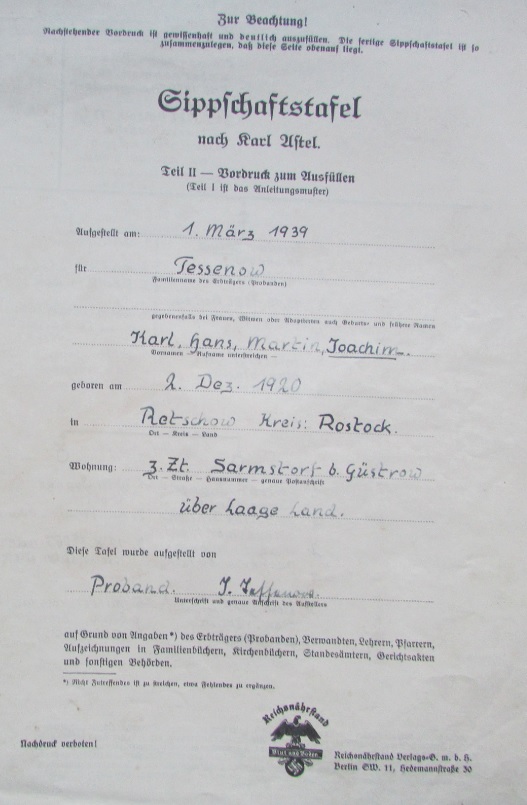 Zur Beachtung!
Nachstehender Vordruck ist gewissenhaft und deutlich auszufüllen. Die fertige Sippschaftstafel ist so
zusammenzulegen, daß diese Seite obenauf liegt.
Sippschaftstafel
nach Karl Astel.
Teil II — Vordruck zum Ausfüllen
(Teil I ist das Anleitungsmuster)
Aufgestellt am: 1. März 1939
für Tessenow
Familienname des Erbträgers (Probanden)
gegebenenfalls bei Frauen, Witwen oder Adoptierten auch Geburts- und frühere Namen
Karl, Hans, Martin, Joachim.
Vornamen — Rufname unterstreichen —
geboren am 2. Dez. 1920
in Retschow Kreis: Rostock.
Ort — Kreis — Land
Wohnung: z. Zt. Sarmstorf b. Güstrow
Ort — Straße — Hausnummer — genaue Postanschrift
über Laage Land.
Diese Tafel wurde aufgestellt von
Proband. J. Tessenow.
Unterschrift und genaue Anschrift des Aufstellers
auf Grund von Angaben*) des Erbträgers (Probanden), Verwandten, Lehrern, Pfarrern,
Aufzeichnungen in Familienbüchern, Kirchenbüchern, Standesämtern, Gerichtsakten
und sonstigen Behörden.
*) Nicht Zutreffendes ist zu streichen, etwa Fehlendes zu ergänzen.
Reichsnährstand
Blut und Boden
Nachdruck verboten!
Reichsnährstand Verlags-G. m. b. H.
Berlin SW. 11, Hedemannstraße 30